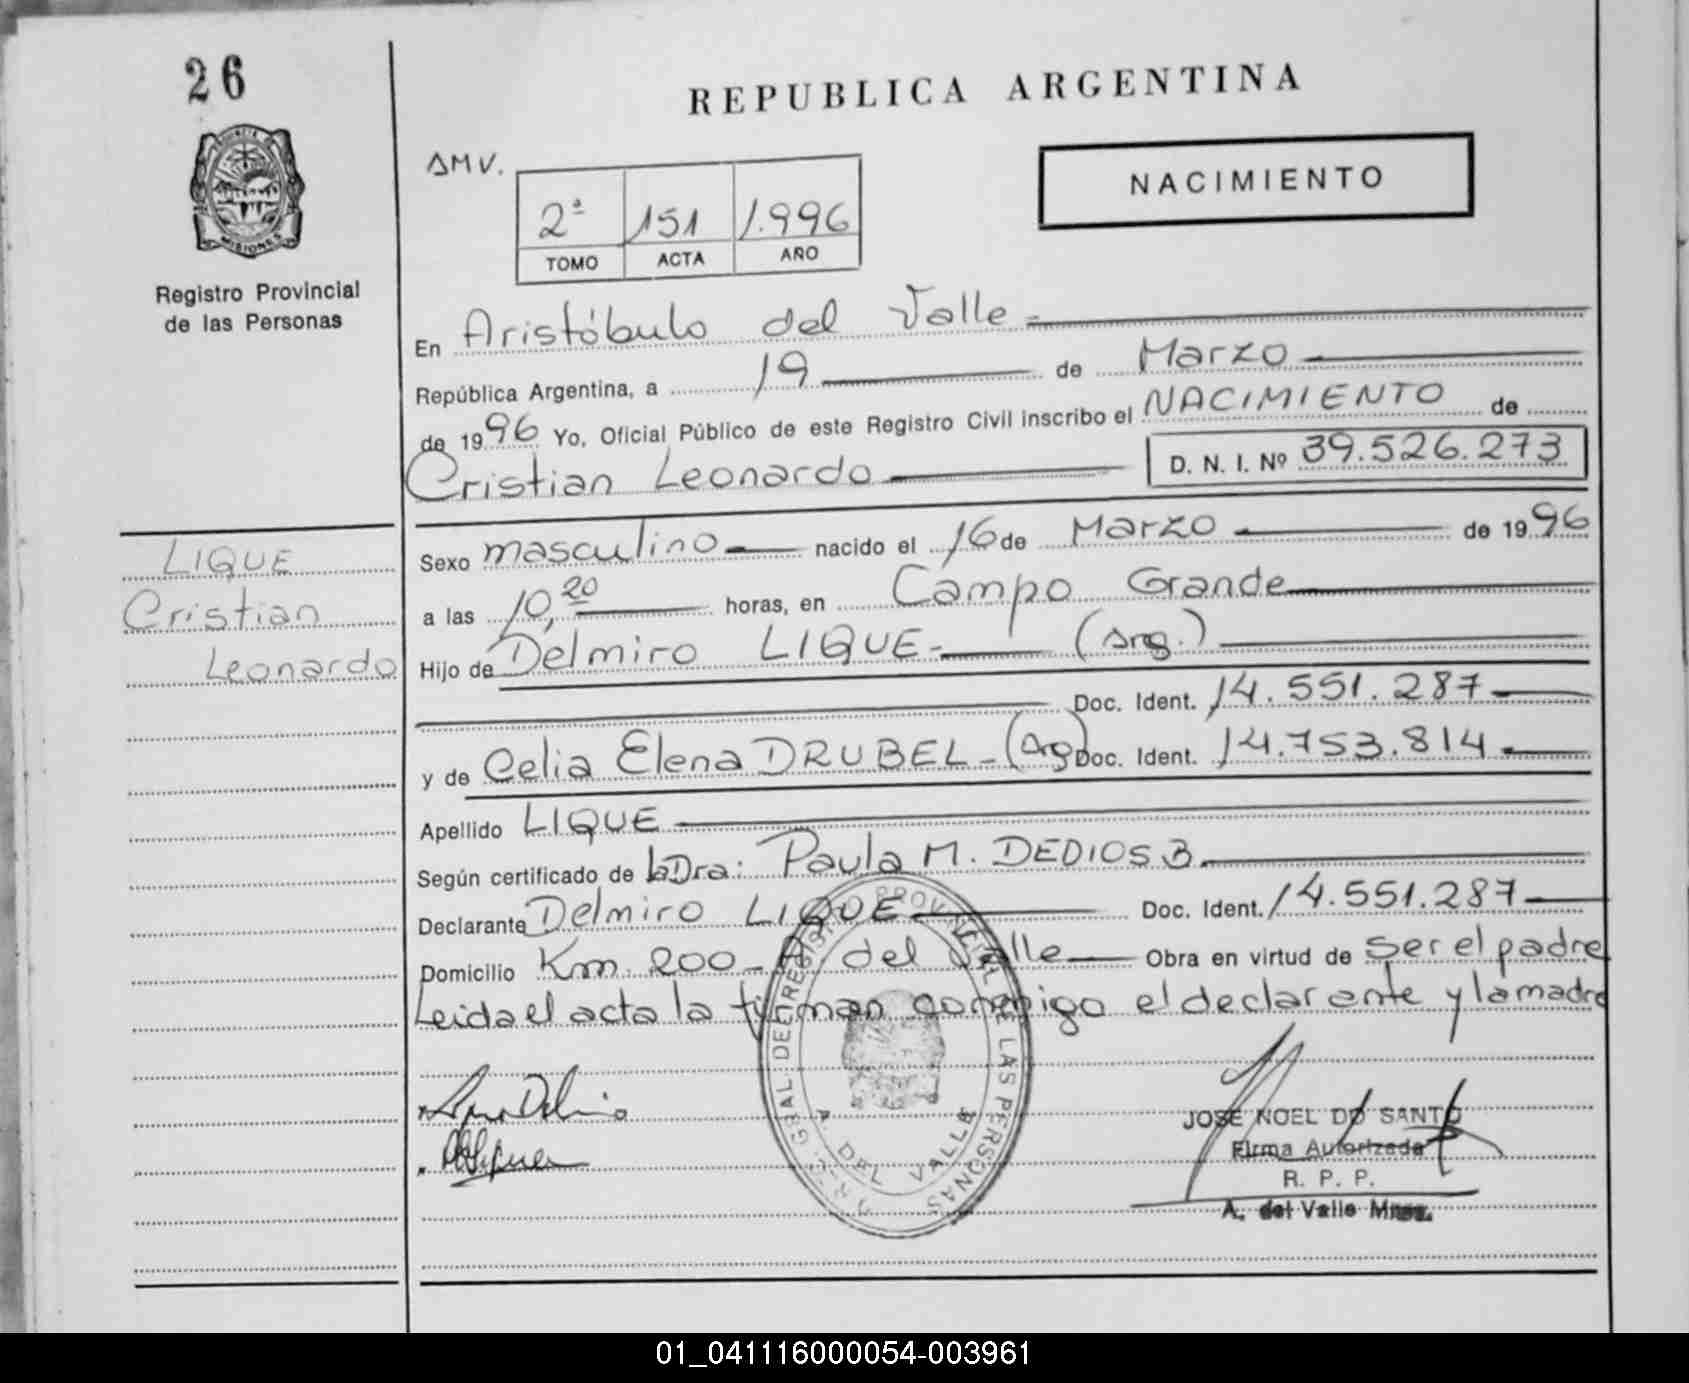 26
REPUBLICA ARGENTINA
MISIONES
Registro Provincial
de las Personas
AMV.
NACIMIENTO
2ª 151 1.996
TOMO ACTA AÑO
En Aristóbulo del Valle
República Argentina, a 19 de Marzo
de 1996 Yo, Oficial Público de este Registro Civil inscribo el NACIMIENTO de
Cristian Leonardo D. N. I. Nº 39.526.273
LIQUE
Cristian
Leonardo
Sexo masculino nacido el 16 de Marzo de 1996
a las 10,20 horas, en Campo Grande
Hijo de Delmiro LIQUE (Arg.)
Doc. Ident. 14.551.287
y de Celia Elena DRUBEL - (Arg) Doc. Ident. 14.753.814
Apellido LIQUE
Según certificado de la Dra: Paula M. DEDIOS B.
Declarante Delmiro LIQUE Doc. Ident. 14.551.287
Domicilio Km. 200 - A. del Valle Obra en virtud de ser el padre
Leida el acta la firman conmigo el declarante y la madre
PROVINCIAL DE LAS PERSONAS
A. DEL VALLE
JOSE NOEL DO SANTO
Firma Autorizada
R. P. P.
A. del Valle Mnes.
01_041116000054-003961